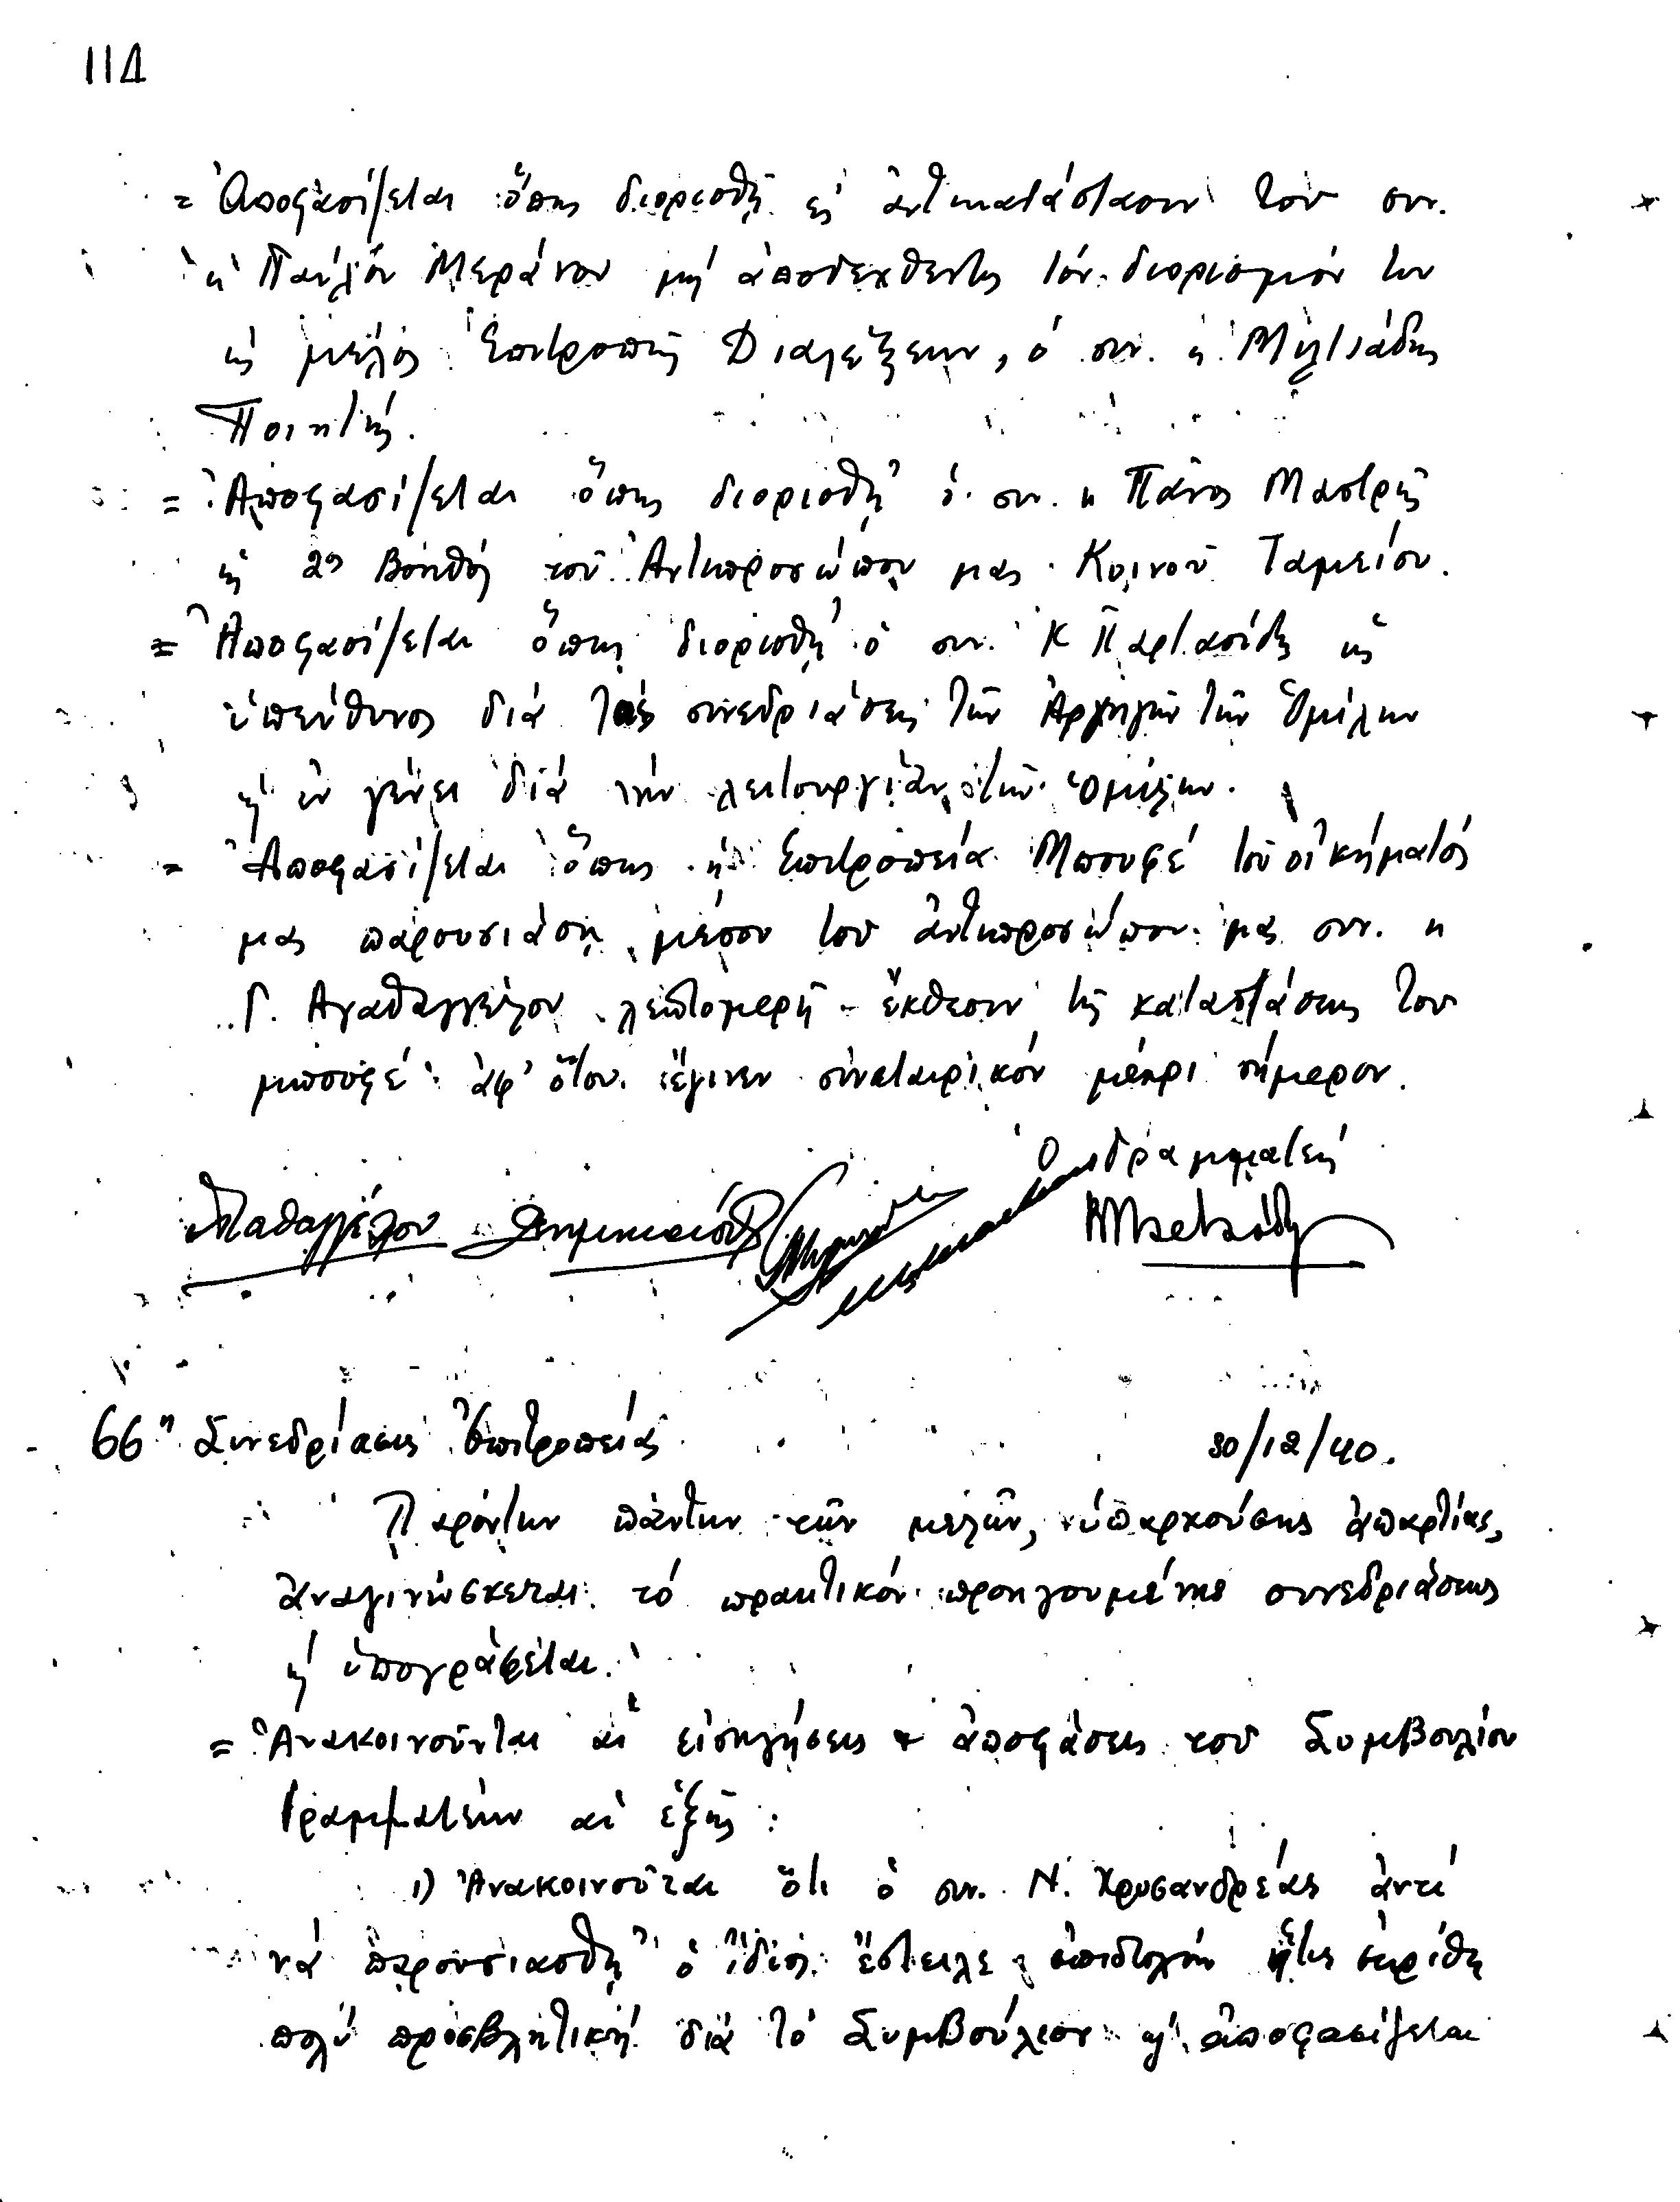 114
= Ἀποφασίζεται ὅπως διορισθῇ εἰς ἀντικατάστασιν τοῦ συν.
κ Παύλου Μεράνου μή ἀποδεχθέντος τόν διορισμόν του
ὡς μέλος Ἐπιτροπῆς Διαλέξεων, ὁ συν. κ Μιλτιάδης
Ποιητής.
= Ἀποφασίζεται ὅπως διορισθῇ ὁ συν. κ Πᾶνος Μαστρῆς
ὡς 2ος Βοηθός τοῦ Ἀντιπροσώπου μας Κοινοῦ Ταμείου.
= Ἀποφασίζεται ὅπως διορισθῇ ὁ συν. Κ Παρτασίδης ὡς
ὑπεύθυνος διά τάς συνεδριάσεις τῶν Ἀρχηγῶν τῶν Ὁμίλων
κ' ἐν γένει διά τήν λειτουργίαν τῶν Ὁμίλων.
= Ἀποφασίζεται ὅπως ἡ Ἐπιτροπεία Μπουφέ τοῦ οἰκήματός
μας παρουσιάσῃ μέσον τοῦ ἀντιπροσώπου μας συν. κ
Γ. Ἀγαθαγγέλου λεπτομερῆ ἔκθεσιν τῆς καταστάσεως τοῦ
μπουφέ ἀφ' ὅτου ἔγινεν συνεταιρικόν μέχρι σήμερον.
Ὁ Γραμματεύς
Ἀγαθαγγέλου
66η Συνεδρίασις Ἐπιτροπείας 30/12/40.
Παρόντων πάντων τῶν μελῶν, ὑπαρχούσης ἀπαρτίας,
ἀναγινώσκεται τό πρακτικόν προηγουμένης συνεδριάσεως
κ' ὑπογράφεται.
= Ἀνακοινοῦνται αἱ εἰσηγήσεις & ἀποφάσεις τοῦ Συμβουλίου
Γραμματέων αἱ ἑξῆς :
1) Ἀνακοινοῦται ὅτι ὁ συν. Ν. Χρυσανδρέας ἀντί
νά παρουσιασθῇ ὁ ἴδιος ἔστειλε ἐπιστολήν ἥτις ἐκρίθη
πολύ προσβλητική διά τό Συμβούλιον κ' ἀποφασίζεται